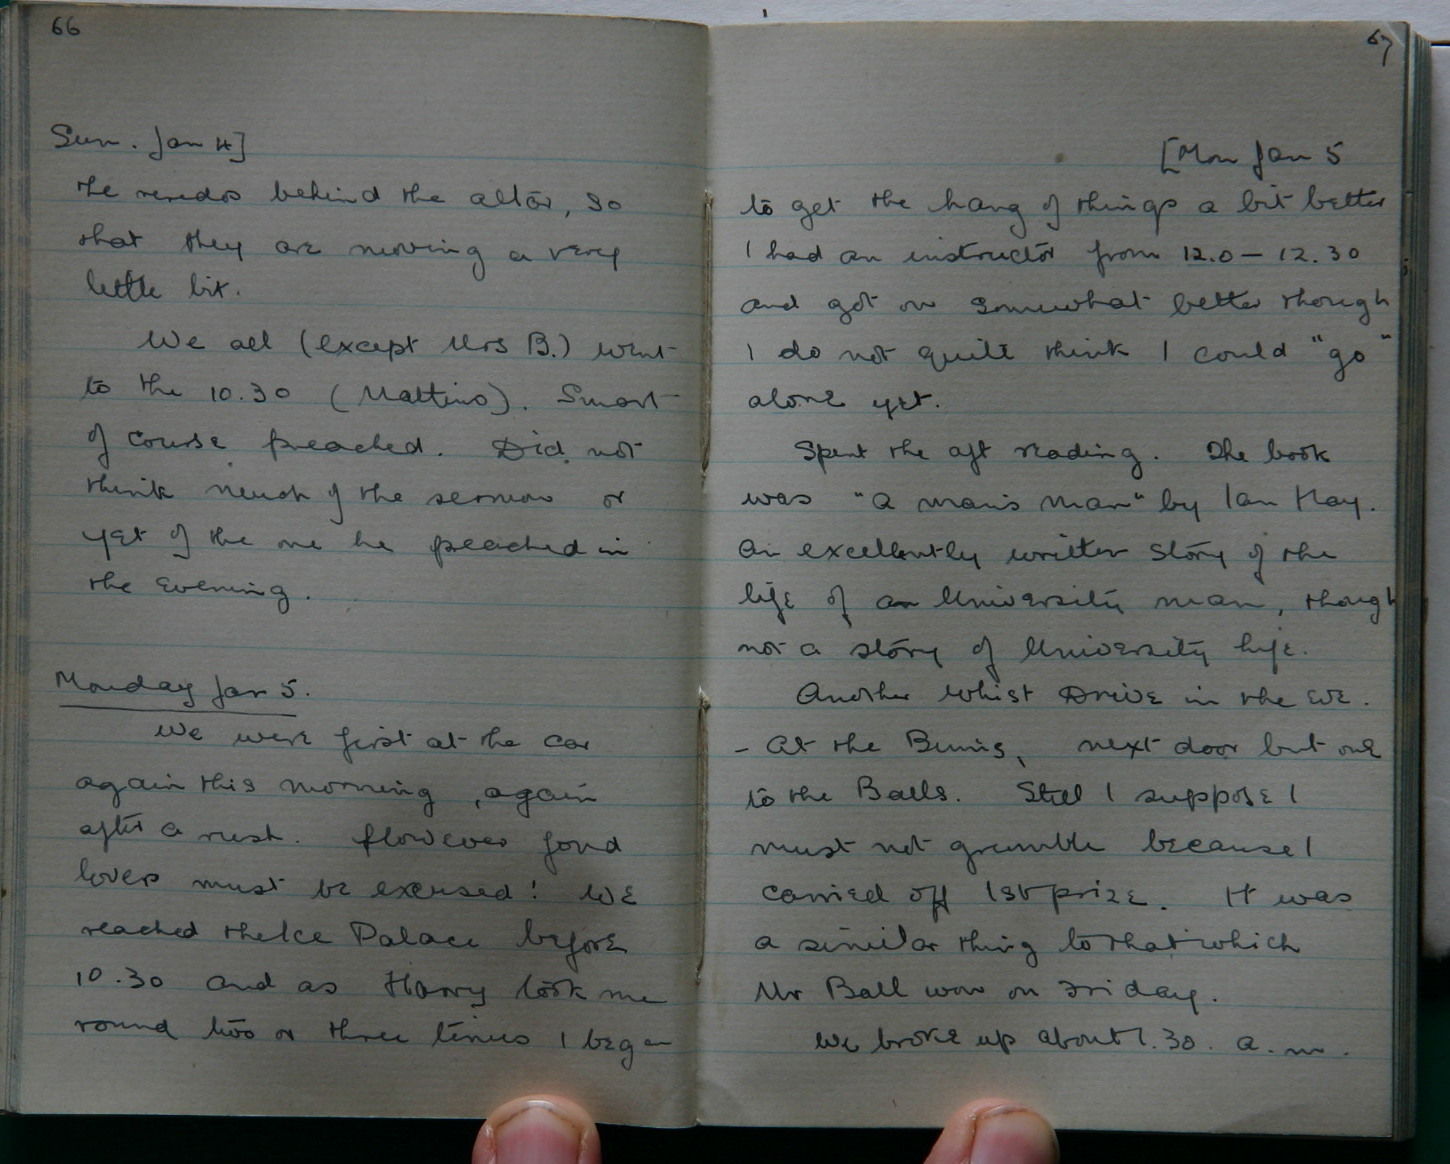 66
Sun. Jan 4]
the reredos behind the altar, so
that they are moving a very
little bit.
We all (except Mrs B.) went
to the 10.30 (Mattins). Smart
of course preached. Did not
think much of the sermon or
yet of the one he preached in
the evening.
Monday Jan 5.
We were first at the car
again this morning, again
after a rush. However fond
lovers must be excused! We
reached the Ice Palace before
10.30 and as Harry took me
round two or three times I began
67
[Mon Jan 5
to get the hang of things a bit better
I had an instructor from 12.0 – 12.30
and got on somewhat better though
I do not quite think I could "go"
alone yet.
Spent the aft reading. The book
was "A man's man" by Ian Hay.
An excellently written story of the
life of a University man, though
not a story of University life.
Another Whist Drive in the eve.
– At the next door but one
to the Balls. Still I suppose I
must not grumble because I
carried off 1st prize. It was
a similar thing to that which
Mr Ball won on Friday.
We broke up about 1.30. a.m.